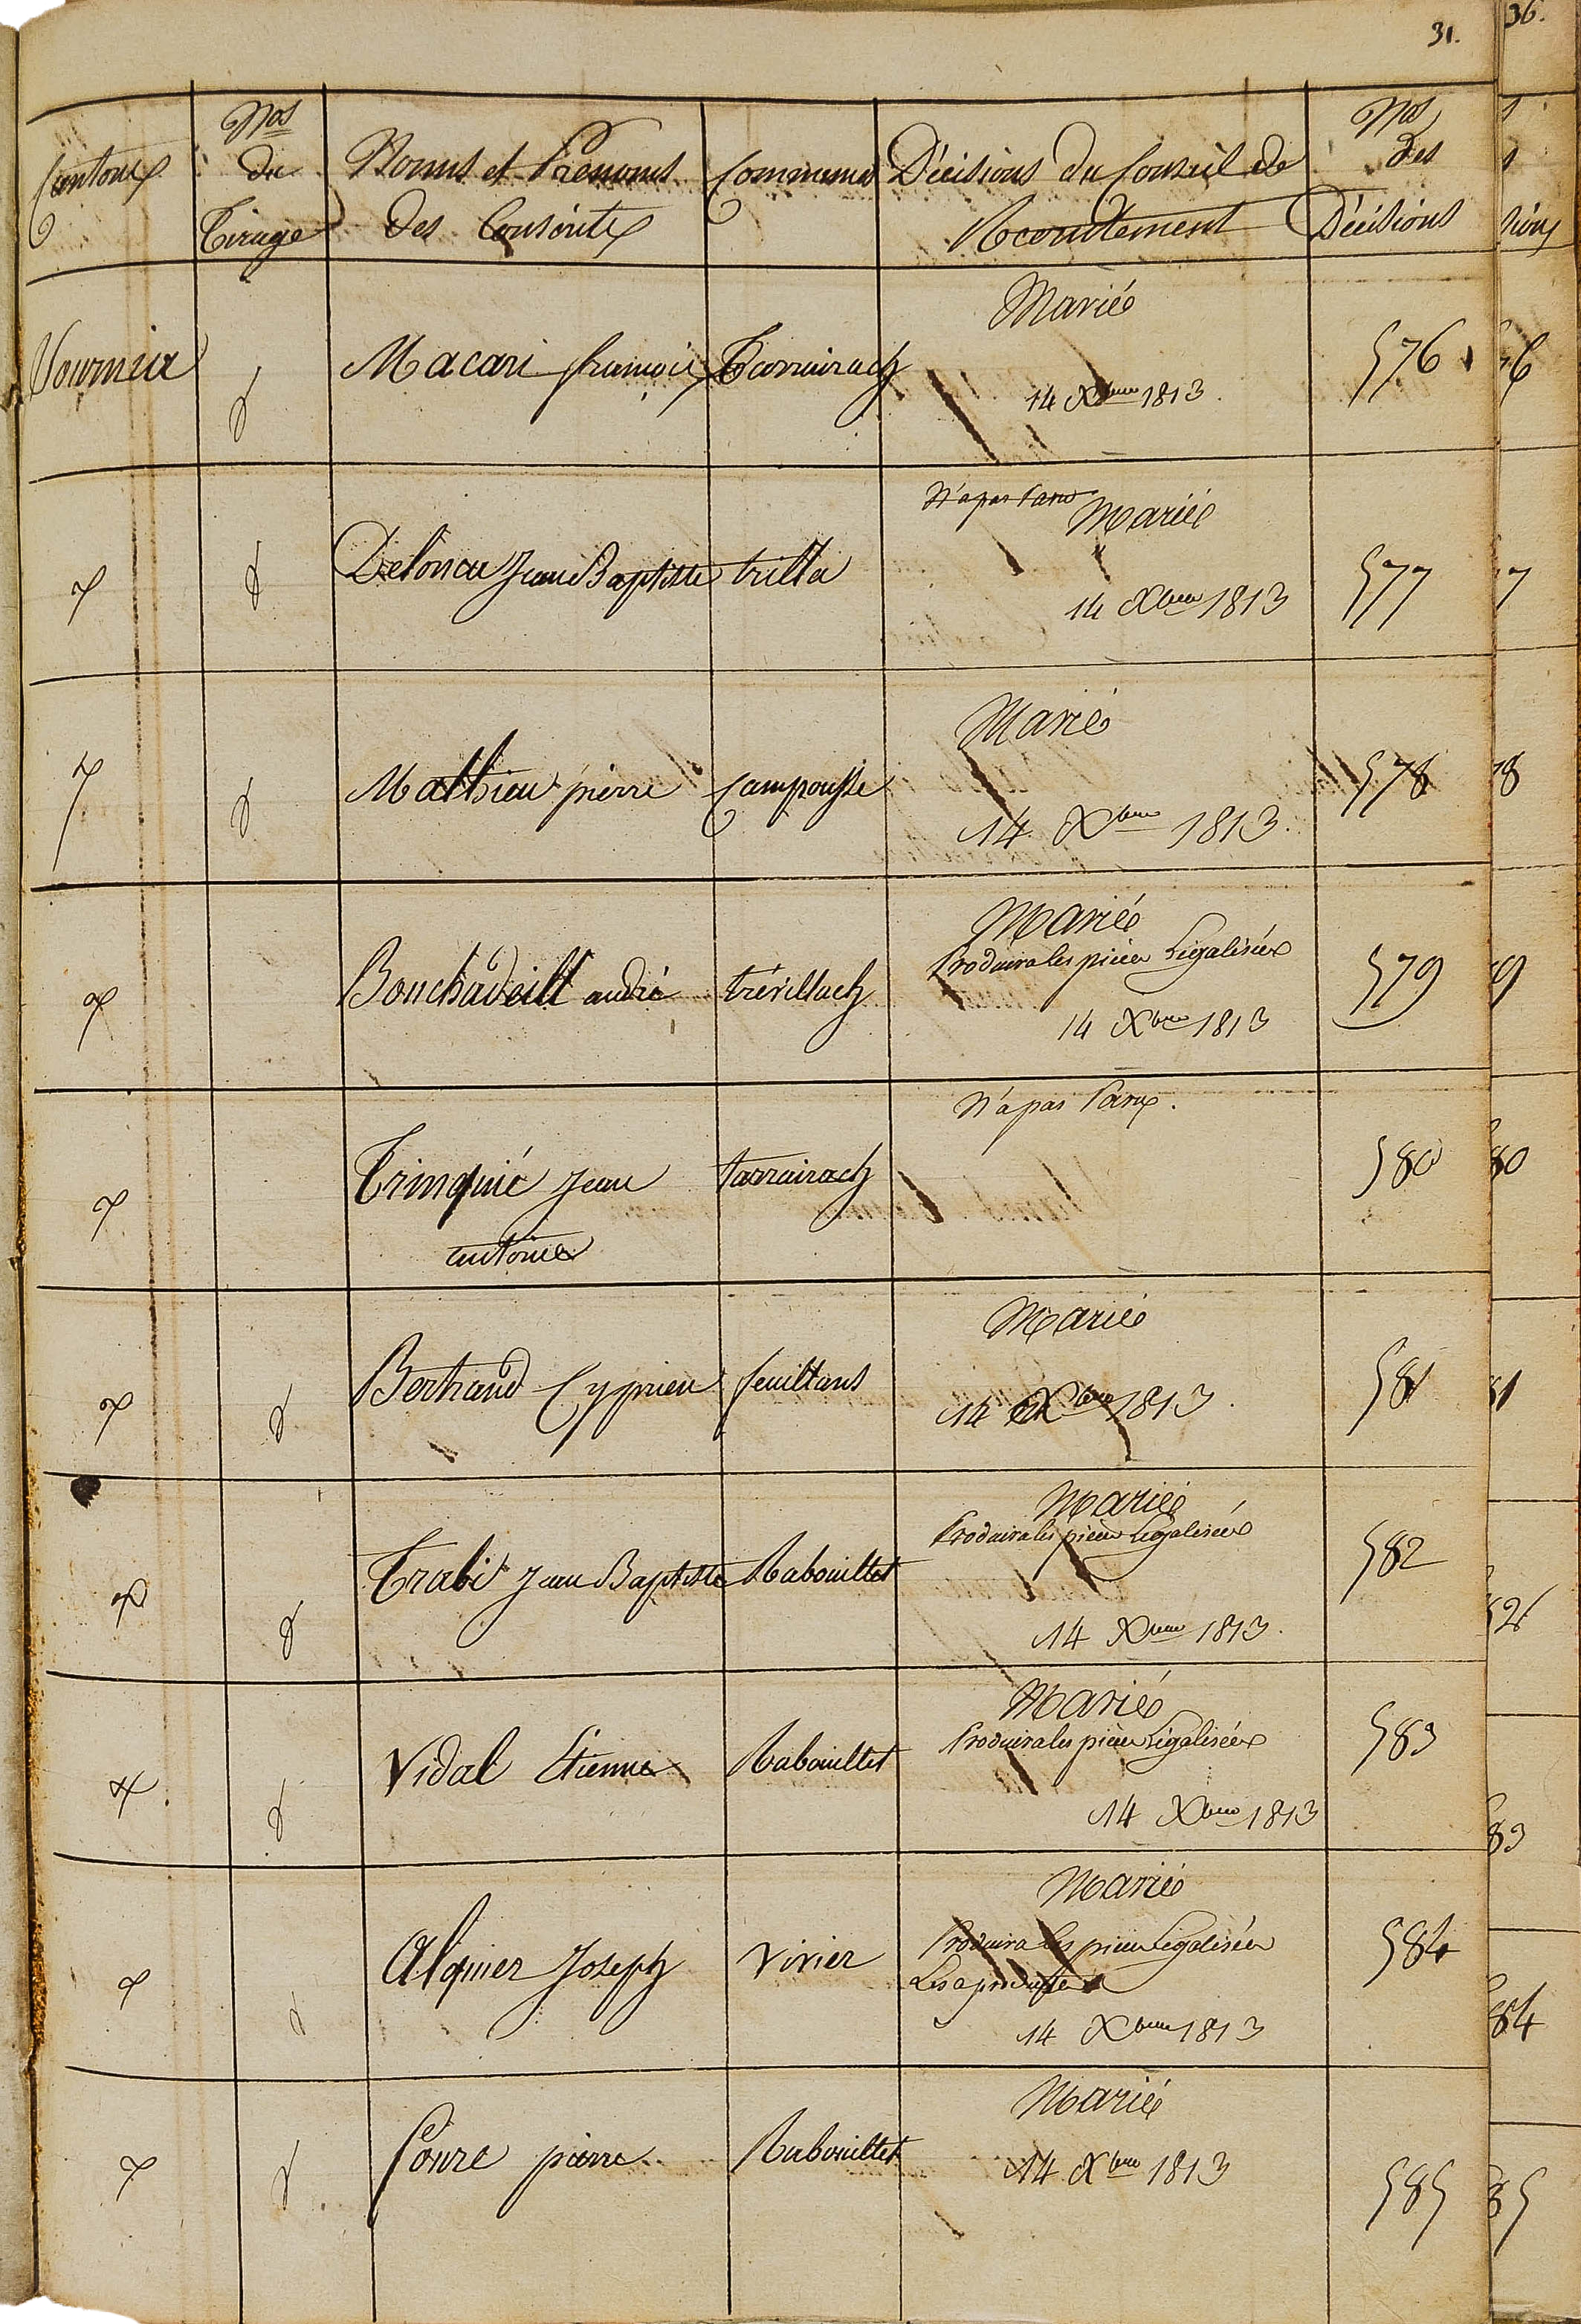 31.
36.
Cantons
Nos du Tirage
Noms et Prénoms des Conscrits
Communes
Décisions du Conseil de Recrutement
Nos des Décisions
Sournia
Macari françois
Tarrairach
Marié
14 Xbre 1813.
576
Deloncu Jean Baptiste
trilla
N'a pas Paru
Marié
14 Xbre 1813
577
Mathieu pierre
Campoussie
Marié
14 Xbre 1813.
578
Bonchadeill andré
trévillach
Marié
Produira les pièces Légalisées
14 Xbre 1813
579
Trinquié Jean
antoine
tarrairach
N'a pas Paru.
580
Bertrand Cyprien
feuillans
Marié
14 Xbre 1813.
581
Trabi Jean Baptiste
Rabouillet
Marié
Produira les pièces Légalisées
14 Xbre 1813.
582
Vidal Étienne
Rabouillet
Marié
Produira les pièces Légalisées
14 Xbre 1813
583
Alquier Joseph
Vivier
Marié
Produira les pièces Légalisées
Les a produites
14 Xbre 1813
584
pierre
Rabouillet
Marié
14 Xbre 1813
585